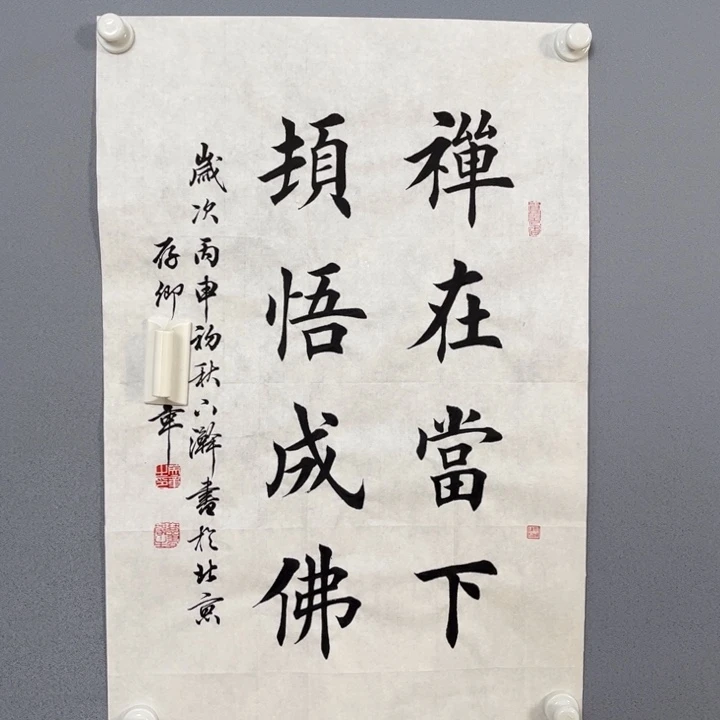 禪在當下
頓悟成佛
歲次丙申初秋下澣書於北京
存卿